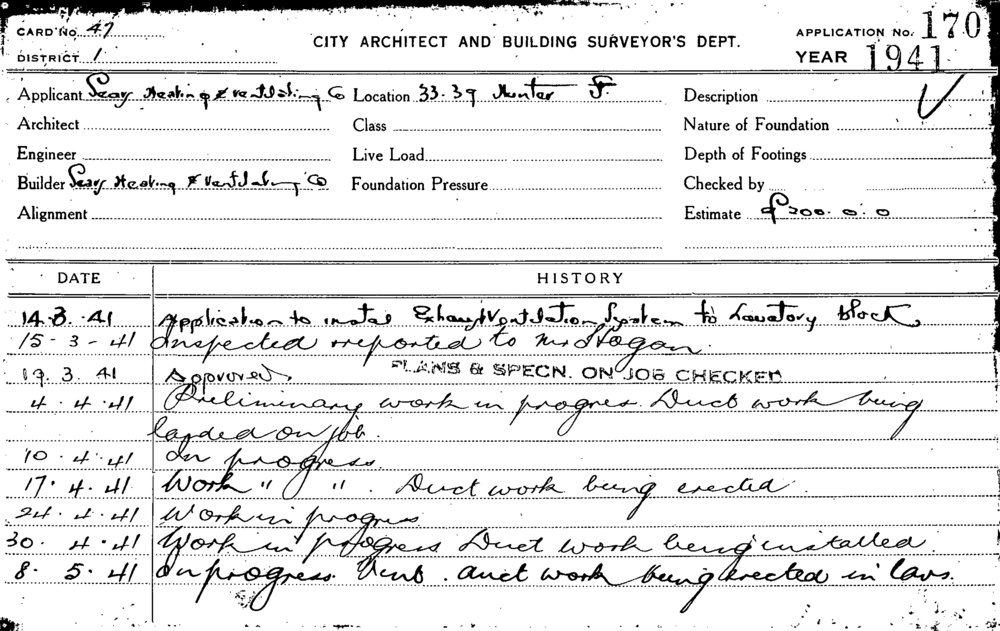 CARD No. 47
DISTRICT 1
CITY ARCHITECT AND BUILDING SURVEYOR'S DEPT.
APPLICATION No. 170
YEAR 1941
Applicant Heating & Ventilating Co Location 33.39 Hunter St. Description
Architect Class Nature of Foundation
Engineer Live Load Depth of Footings
Builder Heating & Ventilating Co Foundation Pressure Checked by
Alignment Estimate £300.0.0
DATE HISTORY
14.3.41 Application to instal Exhaust Ventilation System to Lavatory block
15-3-41 Inspected & reported to Mr Hogan.
19.3.41 Approved. PLANS & SPECN. ON JOB CHECKED
4.4.41 Preliminary work in progres. Duct work being
landed on job.
10.4.41 In progress.
17.4.41 Work " " . Duct work being erected
24.4.41 Work in progress
30.4.41 Work in progress Duct work being installed.
8.5.41 In progress. Vent. duct work being erected in lavs.